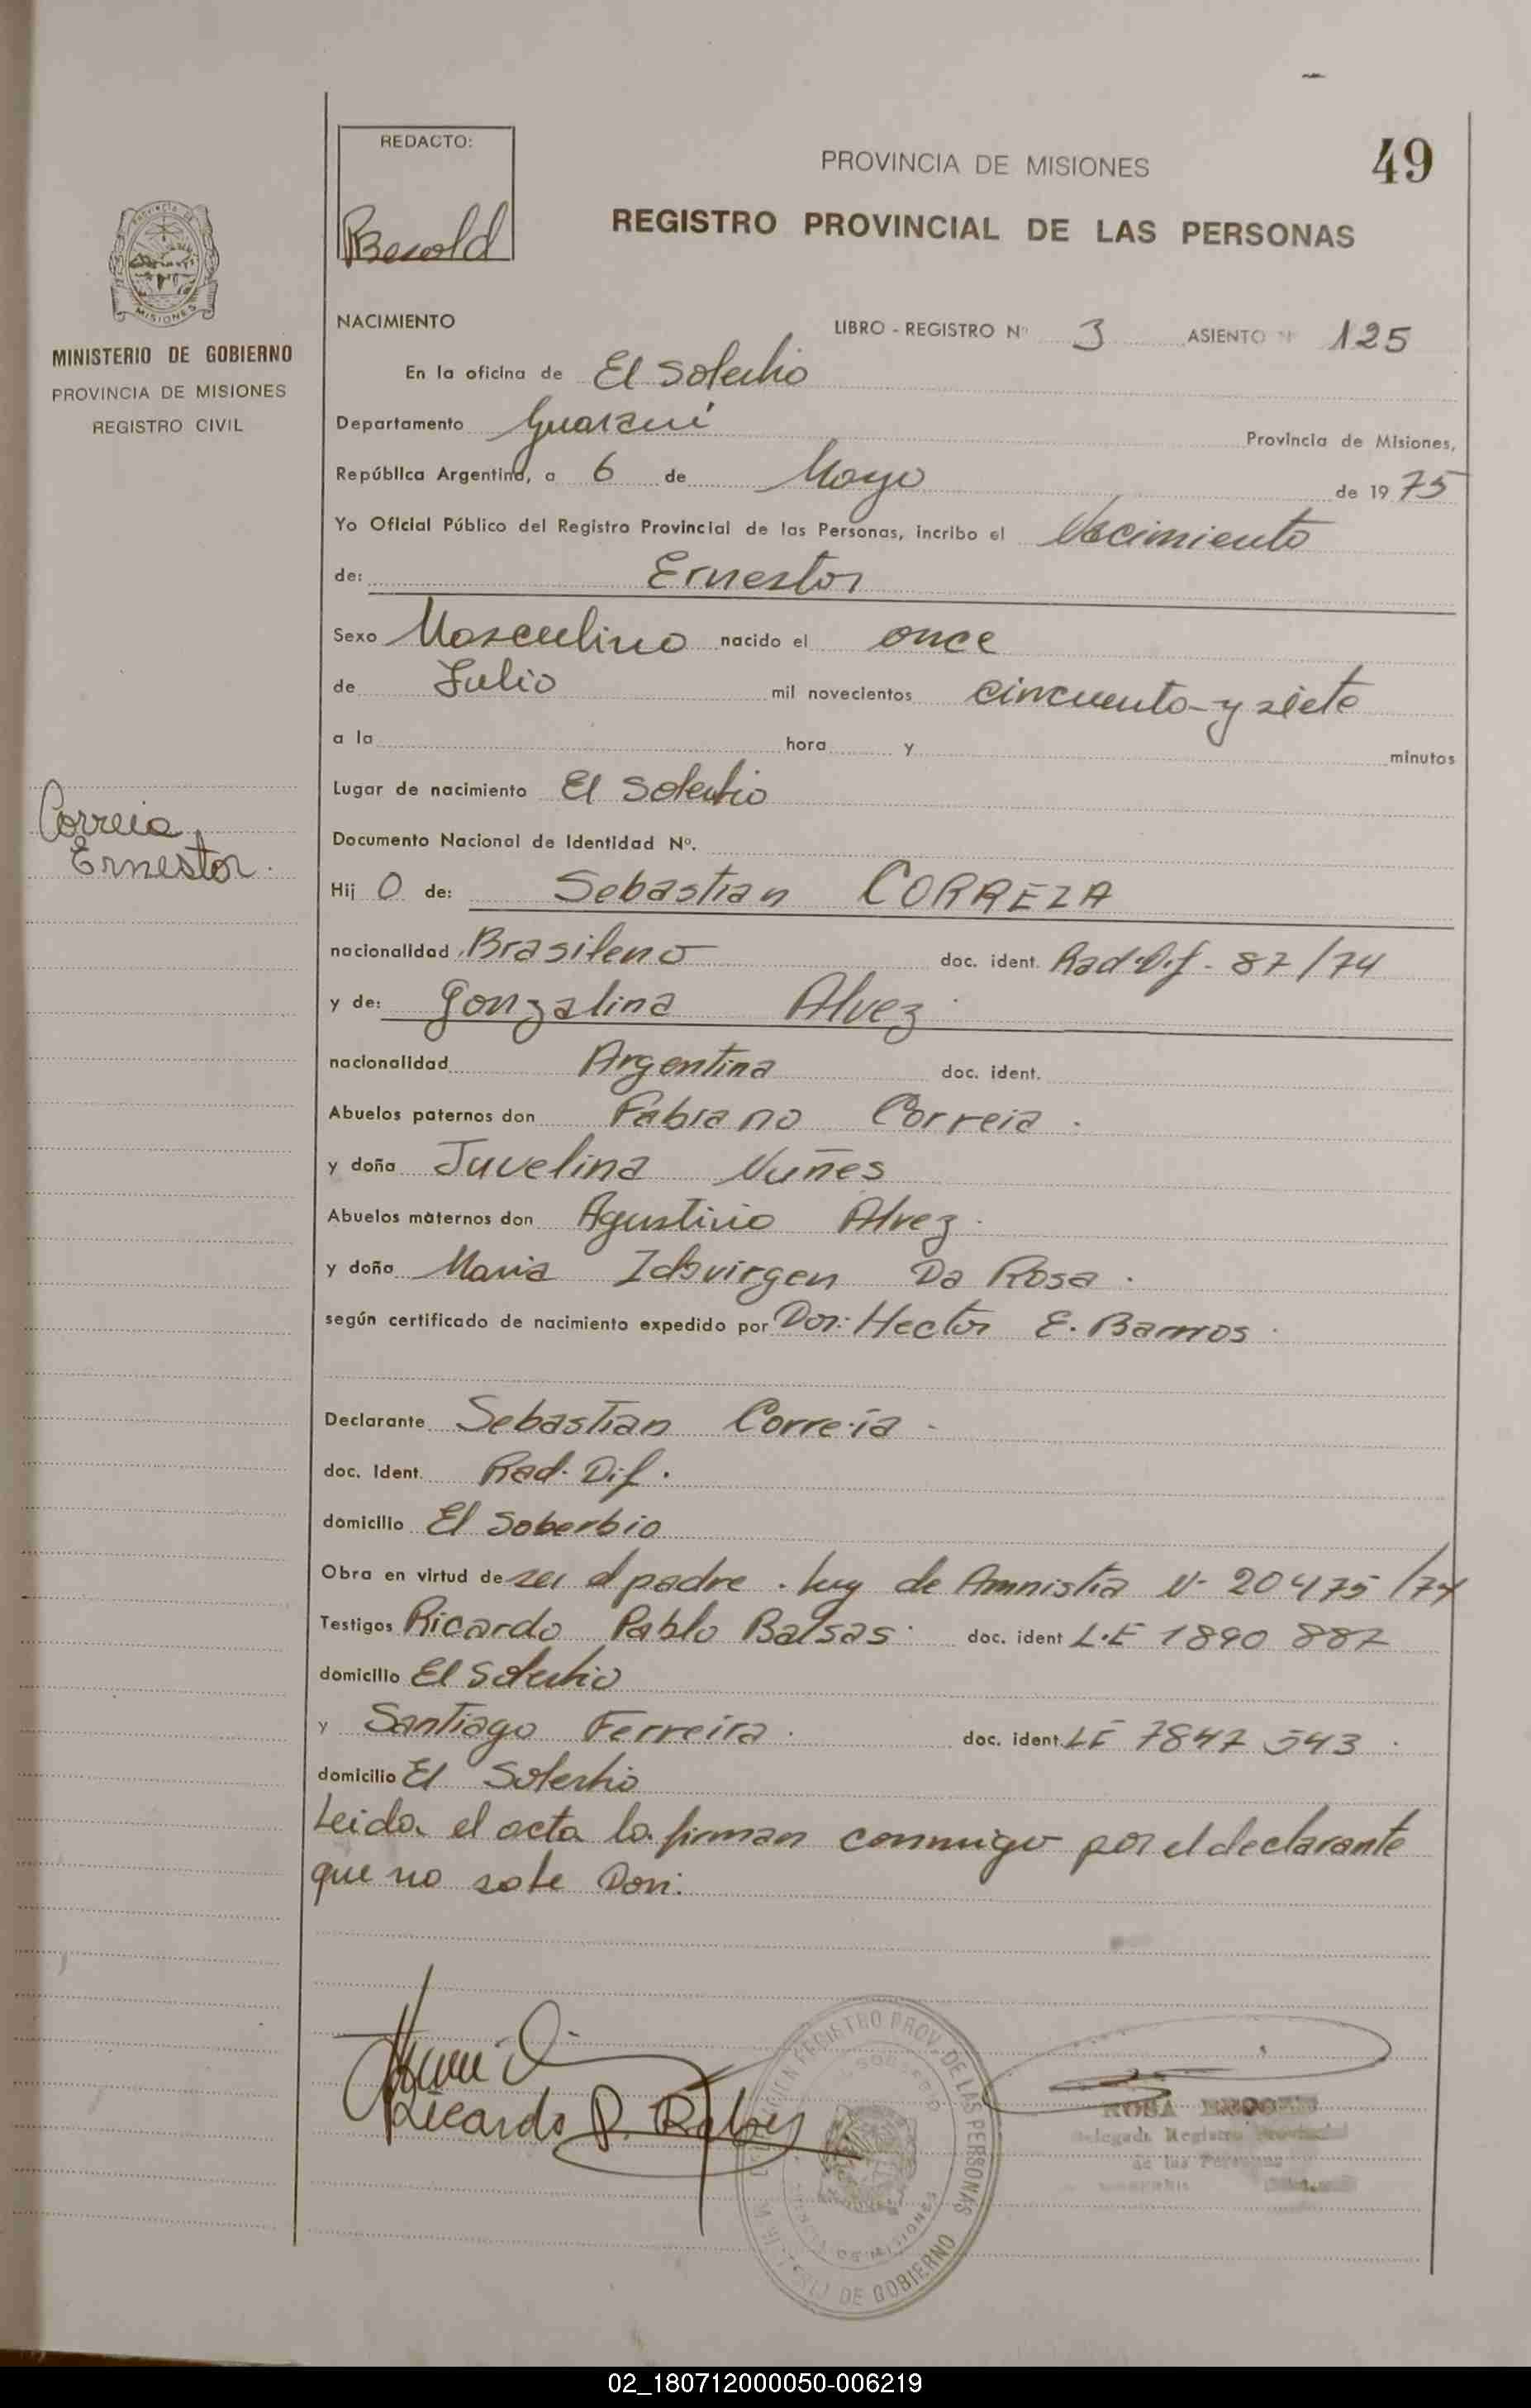 REDACTO:
Besold
PROVINCIA DE MISIONES
49
REGISTRO PROVINCIAL DE LAS PERSONAS
MISIONES
MINISTERIO DE GOBIERNO
PROVINCIA DE MISIONES
REGISTRO CIVIL
NACIMIENTO
LIBRO - REGISTRO Nº 3 ASIENTO Nº 125
En la oficina de El Soberbio
Departamento Guarani Provincia de Misiones,
República Argentina, a 6 de Mayo de 1975
Yo Oficial Público del Registro Provincial de las Personas, incribo el Nacimiento
de: Ernestor
Sexo Masculino nacido el once
de Julio mil novecientos cincuenta y siete
a la hora y minutos
Lugar de nacimiento El Soberbio
Correia,
Ernestor.
Documento Nacional de Identidad Nº.
Hij O de: Sebastian CORREIA
nacionalidad Brasileno doc. ident. Rad. Dif - 87/74
y de: Gonzalina Alvez
nacionalidad Argentina doc. ident.
Abuelos paternos don Fabiano Correia.
y doña Juvelina Nuñes
Abuelos maternos don Agustinio Alvez.
y doña Maria Idovirgen Da Rosa.
según certificado de nacimiento expedido por Don: Hector E. Barrios.
Declarante Sebastian Correia.
doc. Ident. Rad. Dif.
domicilio El Soberbio
Obra en virtud de ser el padre. Ley de Amnistia N- 20475/74
Testigos Ricardo Pablo Balsas. doc. ident L.E 1890 887
domicilio El Soberbio
y Santiago Ferreira. doc. ident. LE 7847 543.
domicilio El Soberbio
Leida el acta la firman conmigo por el declarante
que no sabe Don:
Ricardo P.
REGISTRO PROV. DE LAS PERSONAS
MINISTERIO DE GOBIERNO
PROVINCIA DE MISIONES
ROSA
Delegada Registro Provincial
de las Personas
02_180712000050-006219